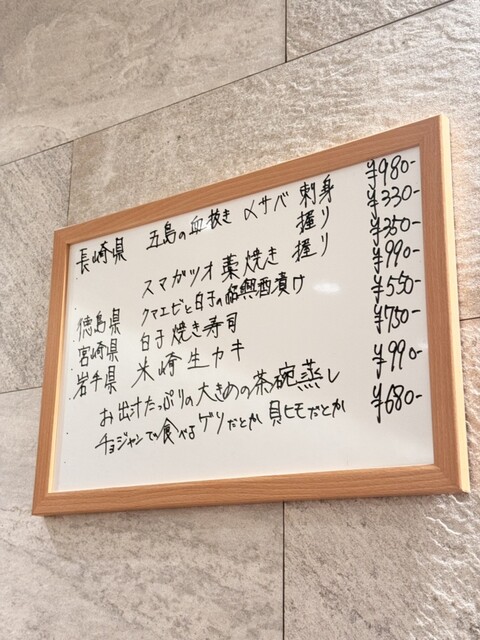 長崎県 五島の血抜き 〆サバ 刺身 ¥980-
握り ¥330-
スマガツオ 藁焼き 握り ¥350-
徳島県 クマエビと白子の紹興酒漬け ¥990-
宮崎県 白子焼き寿司 ¥550-
岩手県 米崎生カキ ¥750-
お出汁たっぷりの大きめの茶碗蒸し ¥990-
チョジャンで食べるゲソだとか貝ヒモだとか ¥680-